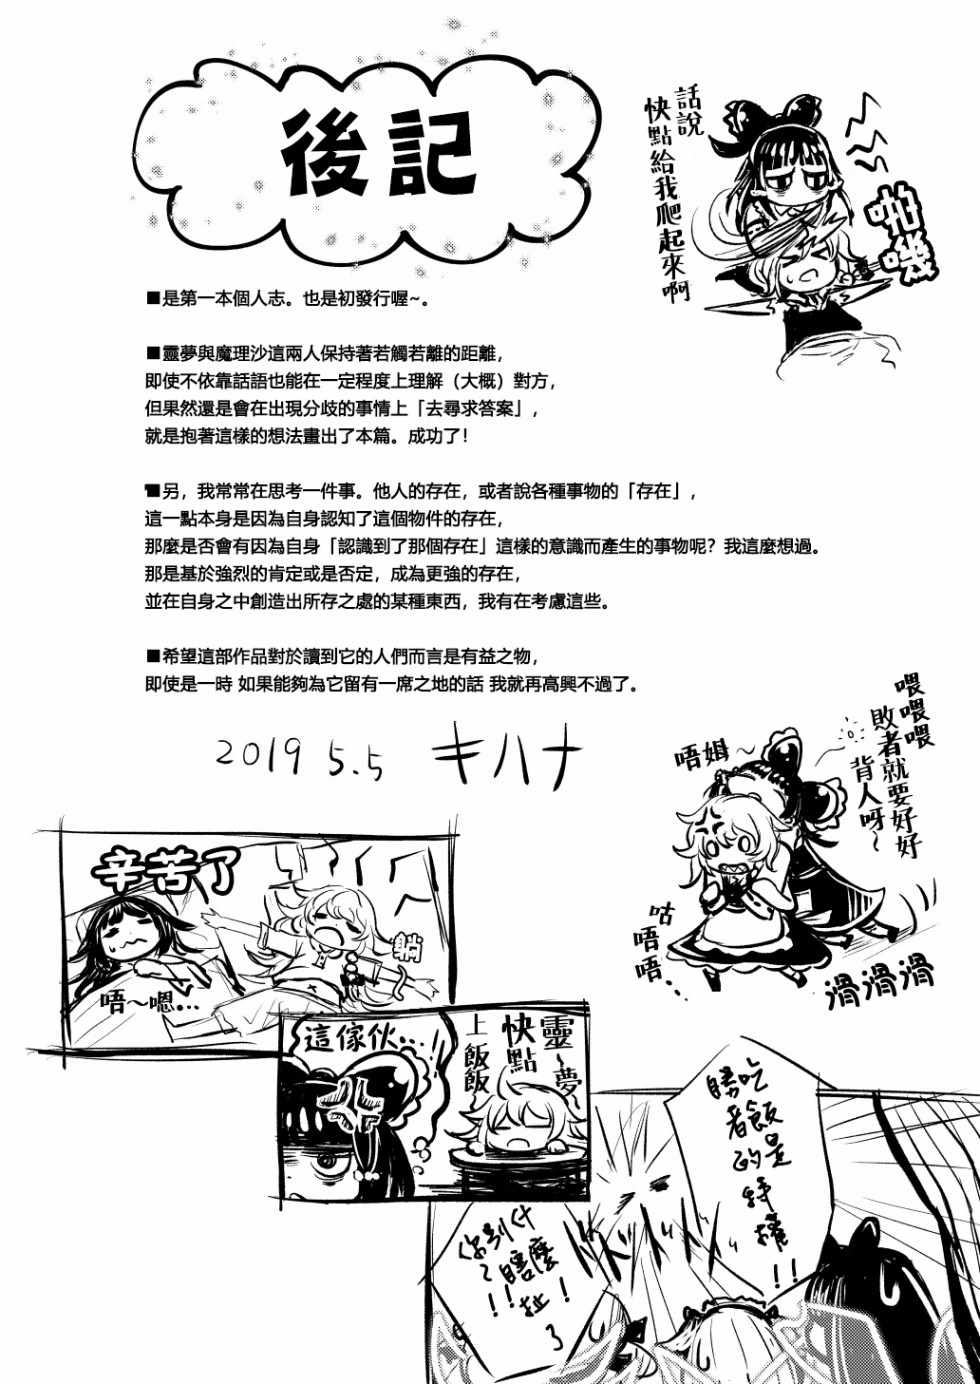 後記
話說
快點給我爬起來啊
啪嘰
■是第一本個人志。也是初發行喔~。
■靈夢與魔理沙這兩人保持著若觸若離的距離，
即使不依靠話語也能在一定程度上理解（大概）對方，
但果然還是會在出現分歧的事情上「去尋求答案」，
就是抱著這樣的想法畫出了本篇。成功了！
■另，我常常在思考一件事。他人的存在，或者說各種事物的「存在」，
這一點本身是因為自身認知了這個物件的存在，
那麼是否會有因為自身「認識到了那個存在」這樣的意識而產生的事物呢？我這麼想過。
那是基於強烈的肯定或是否定，成為更強的存在，
並在自身之中創造出所存之處的某種東西，我有在考慮這些。
■希望這部作品對於讀到它的人們而言是有益之物，
即使是一時 如果能夠為它留有一席之地的話 我就再高興不過了。
2019 5.5 キハナ
喂喂喂
敗者就要好好
背人呀~
唔姆~
咕
唔
唔...
滑滑滑
辛苦了
躺
唔~嗯...
靈~夢~
快點
上飯飯~
這傢伙...!!
吃飯是
勝者的特權!!
什麼啦!
你別瞎
!!